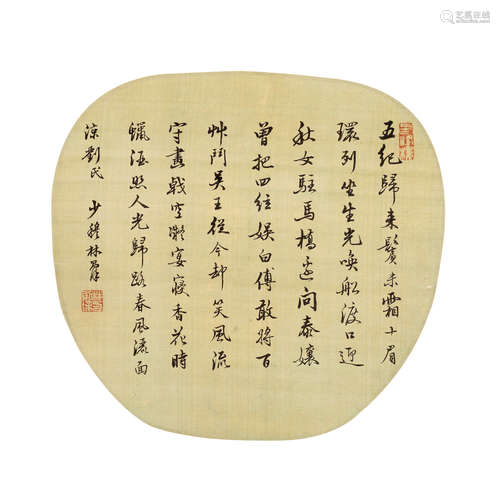 五紀歸来鬢未霜十眉
環列坐生光喚船渡口迎
秋女駐馬橋邊問泰孃
曾把四絃娱白傅敢將百
艸鬥吴王從今却笑風流
守畫戟空凝宴寢香花時
蠟酒照人光歸路春風灑面
涼劉氏 少穆林則徐